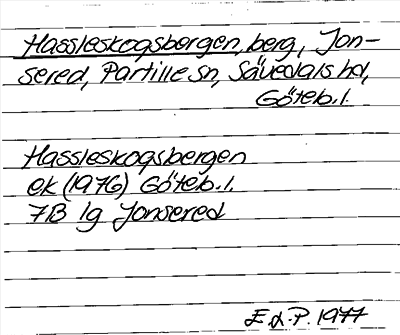 Hassleskogsbergen, berg, Jon-
sered, Partille sn, Sävedals hd,
Göteb. l.
Hassleskogsbergen
ek (1976) Göteb. l.
7B 1g Jonsered
E d. P. 1977